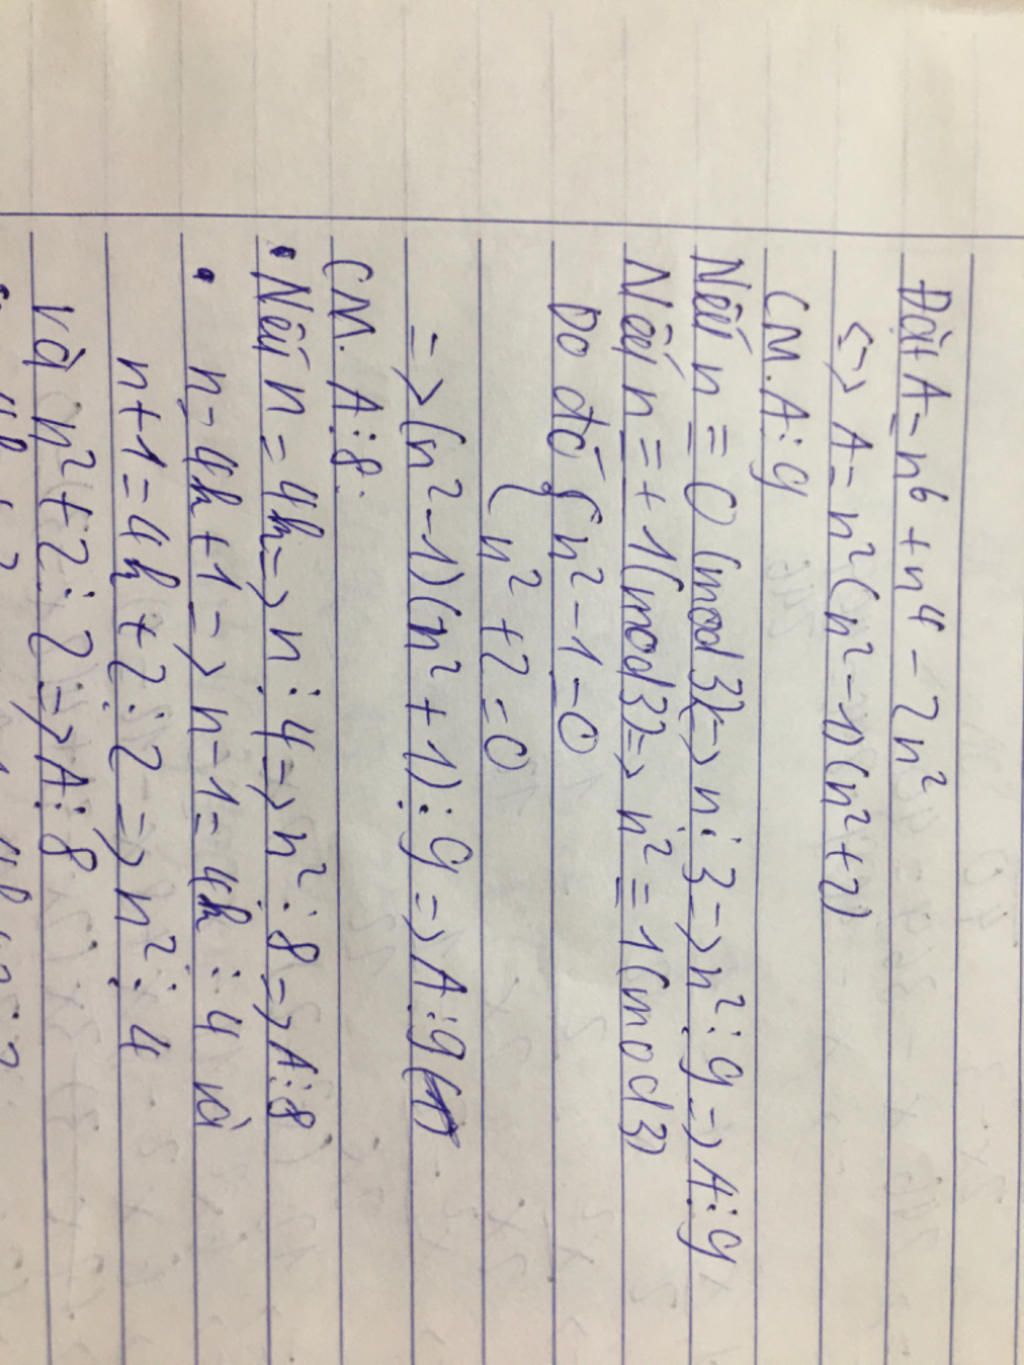 Đặt A = n⁶ + n⁴ - 2n²
<=> A = n²(n² - 1)(n² + 2)
CM. A ⋮ 9
Nếu n ≡ 0 (mod 3) => n ⋮ 3 => n² ⋮ 9 => A ⋮ 9
Nếu n ≡ ± 1 (mod 3) => n² ≡ 1 (mod 3)
Do đó { n² - 1 = 0
n² + 2 = 0
=> (n² - 1)(n² + 1) ⋮ 9 => A ⋮ 9 (1)
CM. A ⋮ 8.
• Nếu n = 4k => n ⋮ 4 => n² ⋮ 8 => A ⋮ 8
• n = 4k + 1 => n - 1 = 4k ⋮ 4 và
n + 1 = 4k + 2 ⋮ 2 => n² ⋮ 4
và n² + 2 ⋮ 2 => A ⋮ 8